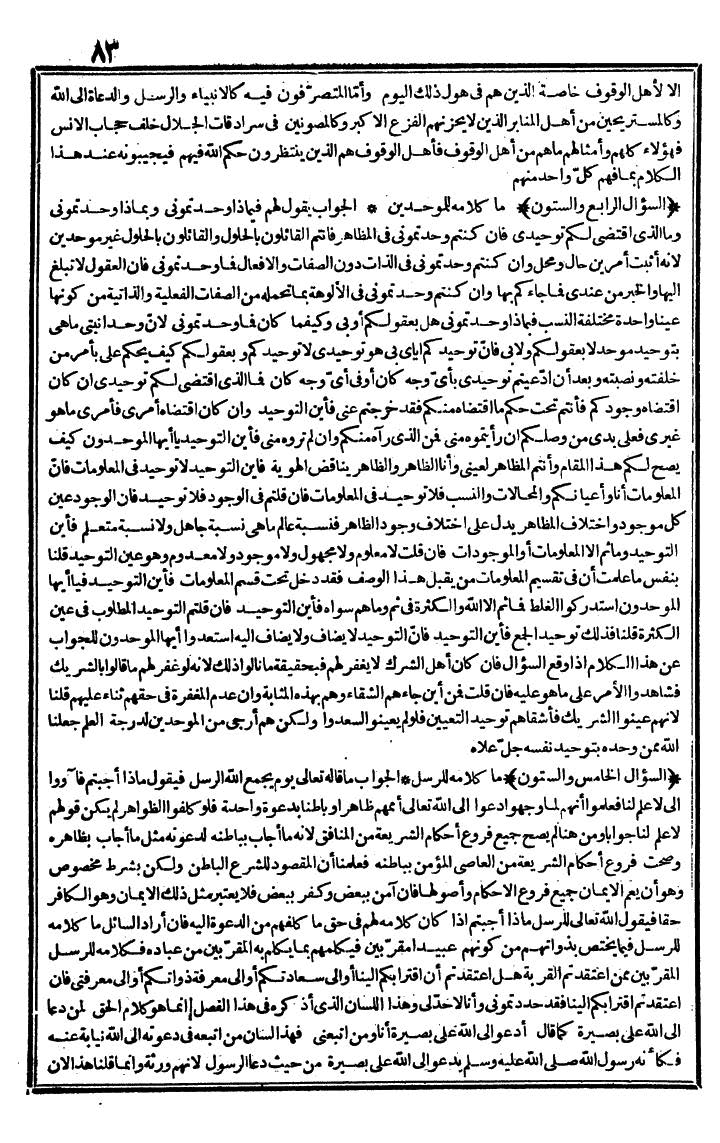 ٨٣
الا لأهل الوقوف خاصة الذين هم فى هول ذلك اليوم وأما المتصرّفون فيه كالانبياء والرسل والدعاة الى الله
وكالمستريحين من أهل المنابر الذين لا يحزنهم الفزع الاكبر وكالمصونين فى سرادقات الجلال خلف حجاب الانس
فهؤلاء كلهم وأمثالهم ماهم من أهل الوقوف فأهل الوقوف هم الذين ينتظرون حكم الله فيهم فيجيبونه عند هذا
الكلام بما فهم كلّ واحد منهم
﴿السؤال الرابع والستون﴾ ما كلامه للموحدين * الجواب يقول لهم فيماذا وحدتمونى وبماذا وحدتمونى
وما الذى اقتضى لكم توحيدى فان كنتم وحدتمونى فى المظاهر فانتم القائلون بالحلول والقائلون بالحلول غير موحدين
لانه أثبت أمرين حال ومحل وان كنتم وحدتمونى فى الذات دون الصفات والافعال فما وحدتمونى فان العقول لا تبلغ
اليها والخبر من عندى فما جاءكم بها وان كنتم وحدتمونى فى الألوهة بما تحمله من الصفات الفعلية والذاتية من كونها
عينا واحدة مختلفة النسب فبماذا وحدتمونى هل بعقولكم أو بى وكيفما كان فما وحدتمونى لانّ وحدانيتى ماهى
بتوحيد موحد لا بعقولكم ولا بى فانّ توحيدكم اياى بى هو توحيدى لا توحيدكم وبعقولكم كيف يحكم علىّ بأمر من
خلقته ونصبته وبعد أن ادّعيتم توحيدى بأىّ وجه كان أو فى أىّ وجه كان فما الذى اقتضى لكم توحيدى ان كان
اقتضاه وجودكم فأنتم تحت حكم ما اقتضاه منكم فقد خرجتم عنى فأين التوحيد وان كان اقتضاه أمرى فأمرى ماهو
غيرى فعلى يدى من وصلكم ان رأيتموه منى فمن الذى رآه منكم وان لم تروه منى فأين التوحيد يا أيها الموحدون كيف
يصح لكم هذا المقام وأنتم المظاهر لعينى وأنا الظاهر والظاهر يناقض الهوية فاين التوحيد لا توحيد فى المعلومات فانّ
المعلومات أنا وأعيانكم والمحالات والنسب فلا توحيد فى المعلومات فان قلتم فى الوجود فلا توحيد فان الوجود عين
كل موجود واختلاف المظاهر يدل على اختلاف وجود الظاهر فنسبة عالم ماهى نسبة جاهل ولا نسبة متعلم فأين
التوحيد وماثم الا المعلومات أو الموجودات فان قلت لا معلوم ولا مجهول ولا موجود ولا معدوم وهو عين التوحيد قلنا
بنفس ما علمت أن فى تقسيم المعلومات من يقبل هذا الوصف فقد دخل تحت قسم المعلومات فأين التوحيد فيا أيها
الموحدون استدركوا الغلط فماثم الا الله والكثرة فى ثم وماهم سواه فأين التوحيد فان قلتم التوحيد المطلوب فى عين
الكثرة قلنا فذلك توحيد الجمع فأين التوحيد فانّ التوحيد لا يضاف ولا يضاف اليه استعدوا أيها الموحدون للجواب
عن هذا الكلام اذا وقع السؤال فان كان أهل الشرك لا يغفر لهم فبحقيقة ما نالوا ذلك لانه لو غفر لهم ما قالوا بالشريك
فشاهدوا الأمر على ماهو عليه فان قلت فمن أين جاءهم الشقاء وهم بهذه المثابة وان عدم المغفرة فى حقهم ثناء عليهم قلنا
لانهم عينوا الشريك فأشقاهم توحيد التعيين فلو لم يعينوا لسعدوا ولكن هم أرجى من الموحدين لدرجة العلم جعلنا
الله ممن وحده بتوحيد نفسه جلّ علاه
﴿السؤال الخامس والستون﴾ ما كلامه للرسل * الجواب ما قاله تعالى يوم يجمع الله الرسل فيقول ماذا أجبتم فآووا
الى لا علم لنا فعلموا أنهم لما وجهوا دعوا الى الله تعالى أممهم ظاهرا وباطنا بدعوة واحدة فلو كلفوا الظواهر لم يكن قولهم
لا علم لنا جوابا ومن هنا لم يصح جميع فروع أحكام الشريعة من المنافق لانه ما أجاب بباطنه لدعوته مثل ما أجاب بظاهره
وصحت فروع أحكام الشريعة من العاصى المؤمن بباطنه فعلمنا أن المقصود للشرع الباطن ولكن بشرط مخصوص
وهو أن يعم الايمان جميع فروع الاحكام وأصولها فان آمن ببعض وكفر ببعض فلا يعتبر مثل ذلك الايمان وهو الكافر
حقا فيقول الله تعالى للرسل ماذا أجبتم اذا كان كلامه لهم فى حق ما كلفهم من الدعوة اليه فان أراد السائل ما كلامه
للرسل فيما يختص بذواتهم من كونهم عبيدا مقرّبين فيكلمهم بما يكلم به المقرّبين من عباده فكلامه للرسل
المقرّبين بمن اعتقدتم القربة هل اعتقدتم أن اقترابكم الينا أو الى سعادتكم أو الى معرفة ذواتكم أو الى معرفتى فان
اعتقدتم اقترابكم الينا فقد حددتمونى وأنا لا حدّ لى وهذا اللسان الذى أذكره فى هذا الفصل انما هو كلام الحق لمن دعا
الى الله على بصيرة كما قال أدعو الى الله على بصيرة أنا ومن اتبعنى فهذا لسان من اتبعه فى دعوته الى الله نيابة عنه
فكأنه رسول الله صلى الله عليه وسلم يدعو الى الله على بصيرة من حيث دعا الرسول لانهم ورثة وانما قلنا هذا الان